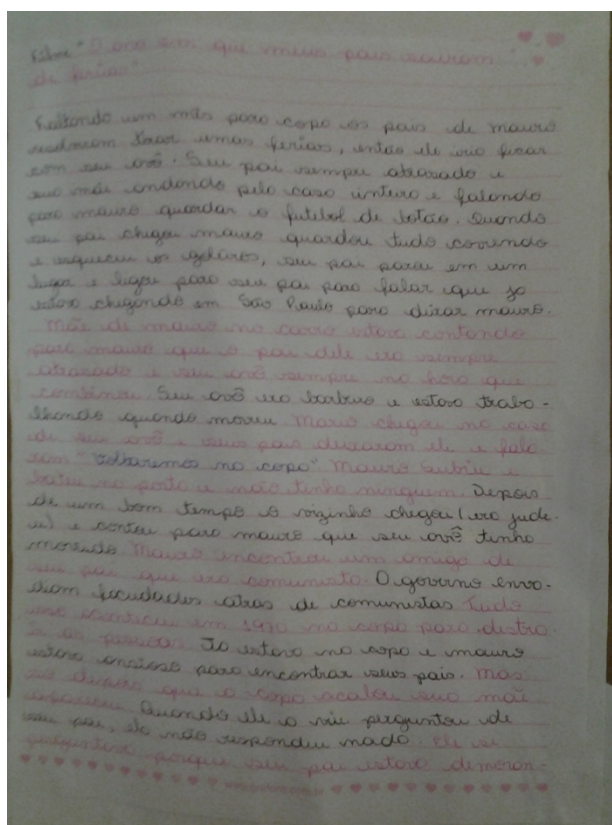 Filme "O ano em que meus pais sairam
de ferias"
Faltando um mês para copa os pais de mauro
resolveram tirar umas ferias, então ele iria ficar
com seu avô. Seu pai sempre atrasado e
sua mãe andando pela casa inteira e falando
para mauro guardar o futebol de botão. Quando
seu pai chegou mauro guardou tudo correndo
e esqueceu os goleiros, seu pai parou em um
lugar e ligou para seu pai para falar que ja
estava chegando em São Paulo para dixar mauro.
Mãe de mauro no carro estava contando
para mauro que o pai dele era sempre
atrasado e seu avô sempre na hora que
combinou. Seu avô era barbeiro e estava traba-
lhando quando morreu Mauro chegou na casa
de seu avô e seus pais deixaram ele e fala
ram "voltaremos na copa" Mauro subiu e
bateu na porta e não tinha ninguem. Depois
de um bom tempo o vizinho chegou (era jude-
u) e contou para mauro que seu avô tinha
morrido Mauro encontrou um amigo de
seu pai que era comunista. O governo enva-
diam facudades atras de comunistas Tudo
isso aconteceu em 1970 na copa para distra-
ir as pessoas Ja estava na copa e mauro
estava ansioso para encontrar seus pais. Mas
so depois que a copa acabou sua mãe
apareceu Quando ele a viu perguntou de
seu pai, ela não respondeu nada. Ele se
perguntava porque seu pai estava demoran-